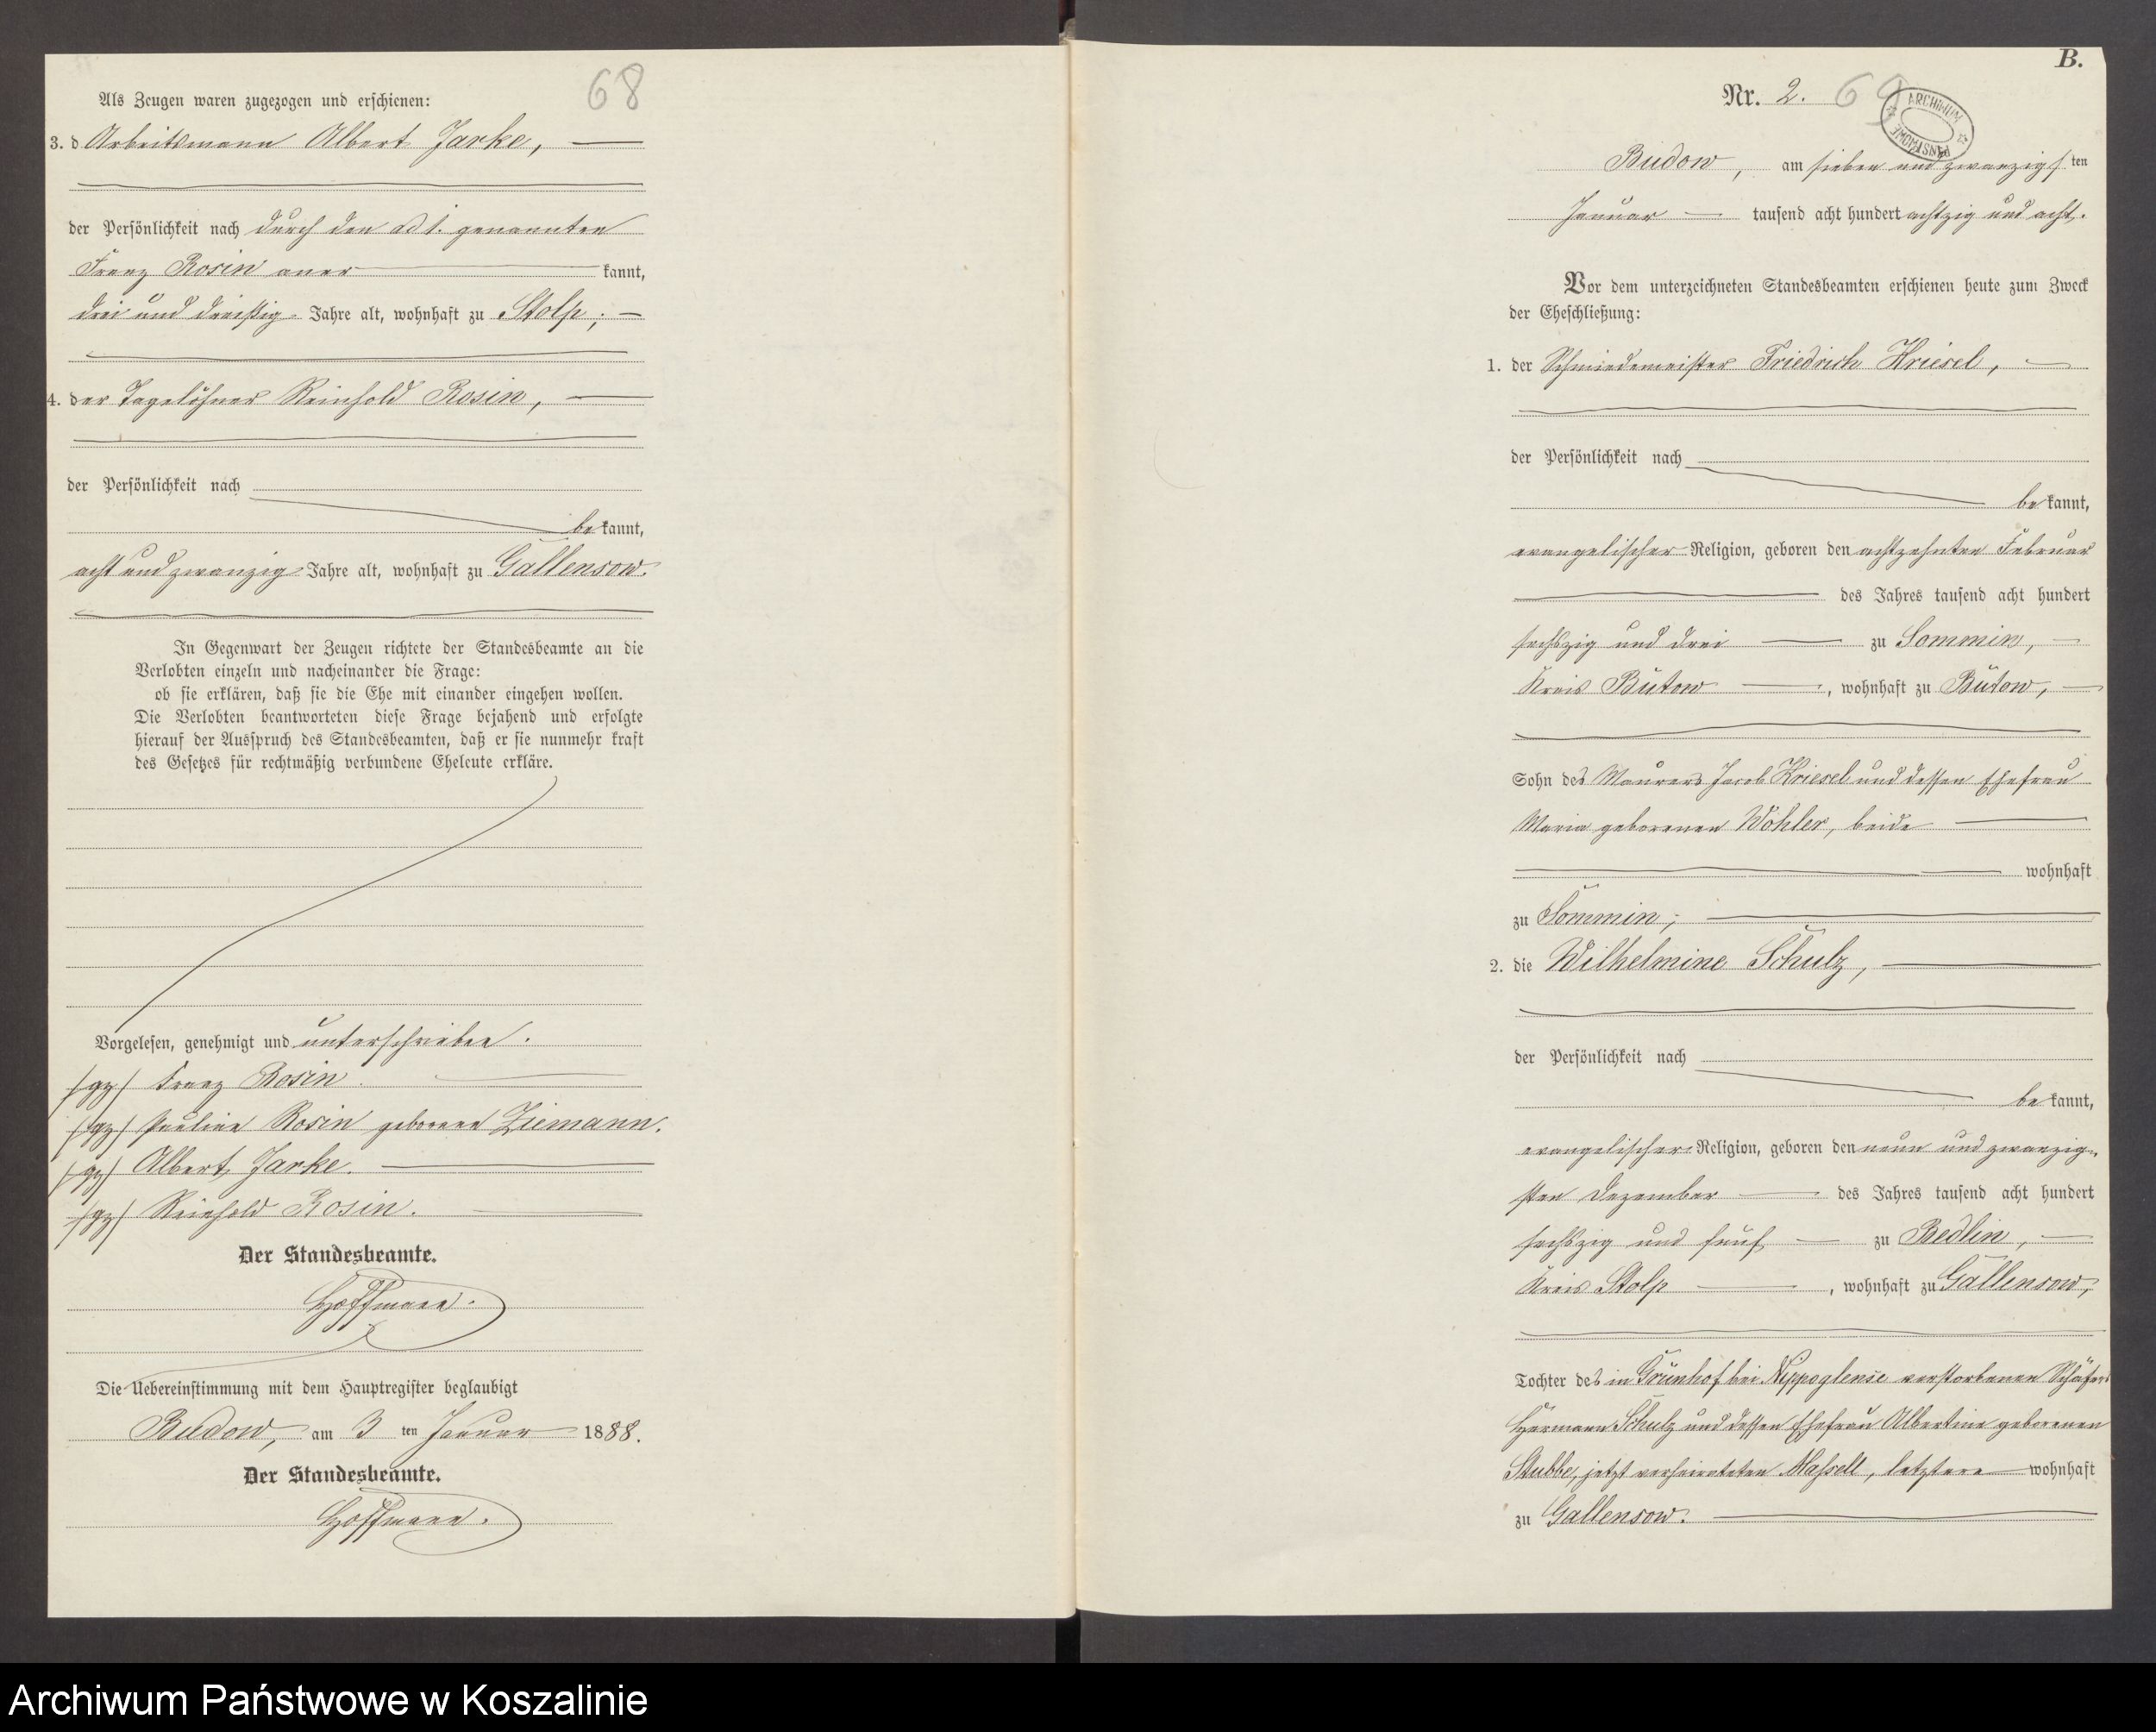 68
Als Zeugen waren zugezogen und erschienen:
3. d Arbeitsmann Albert Jarke,
der Persönlichkeit nach durch den ad 1. genannten
Franz Rosin aner kannt,
drei und dreißig Jahre alt, wohnhaft zu Stolp;
4. der Tagelöhner Reinhold Rosin,
der Persönlichkeit nach
be kannt,
acht und zwanzig Jahre alt, wohnhaft zu Gallensow.
In Gegenwart der Zeugen richtete der Standesbeamte an die
Verlobten einzeln und nacheinander die Frage:
ob sie erklären, daß sie die Ehe mit einander eingehen wollen.
Die Verlobten beantworteten diese Frage bejahend und erfolgte
hierauf der Ausspruch des Standesbeamten, daß er sie nunmehr kraft
des Gesetzes für rechtmäßig verbundene Eheleute erkläre.
Vorgelesen, genehmigt und unterschrieben.
(gz) Franz Rosin.
(gz) Pauline Rosin geborene Ziemann.
(gz) Albert Jarke.
(gz) Reinhold Rosin.
Der Standesbeamte.
Hoffmann.
Die Uebereinstimmung mit dem Hauptregister beglaubigt
Budow, am 3 ten Januar 1888.
Der Standesbeamte.
Hoffmann.
B.
Nr. 2. 69
ARCHIWUM PAŃSTWOWE
Budow, am sieben und zwanzigs ten
Januar tausend acht hundert achtzig und acht.
Vor dem unterzeichneten Standesbeamten erschienen heute zum Zweck
der Eheschließung:
1. der Schmiedemeister Friedrich Kriesel,
der Persönlichkeit nach
be kannt,
evangelischer Religion, geboren den achtzehnten Februar
des Jahres tausend acht hundert
sechszig und drei zu Sommin,
Kreis Bütow, wohnhaft zu Bütow,
Sohn des Maurers Jacob Kriesel und dessen Ehefrau
Maria geborenen Wohler, beide
wohnhaft
zu Sommin;
2. die Wilhelmine Schulz,
der Persönlichkeit nach
be kannt,
evangelischer Religion, geboren den neun und zwanzig-
sten Dezember des Jahres tausend acht hundert
sechszig und fünf zu Redlin,
Kreis Stolp, wohnhaft zu Gallensow,
Tochter des in Grünhof bei Nippoglense verstorbenen Schäfers
Hermann Schulz und dessen Ehefrau Albertine geborenen
Stubbe, jetzt verheirateten Massell, letztere wohnhaft
zu Gallensow.
Archiwum Państwowe w Koszalinie